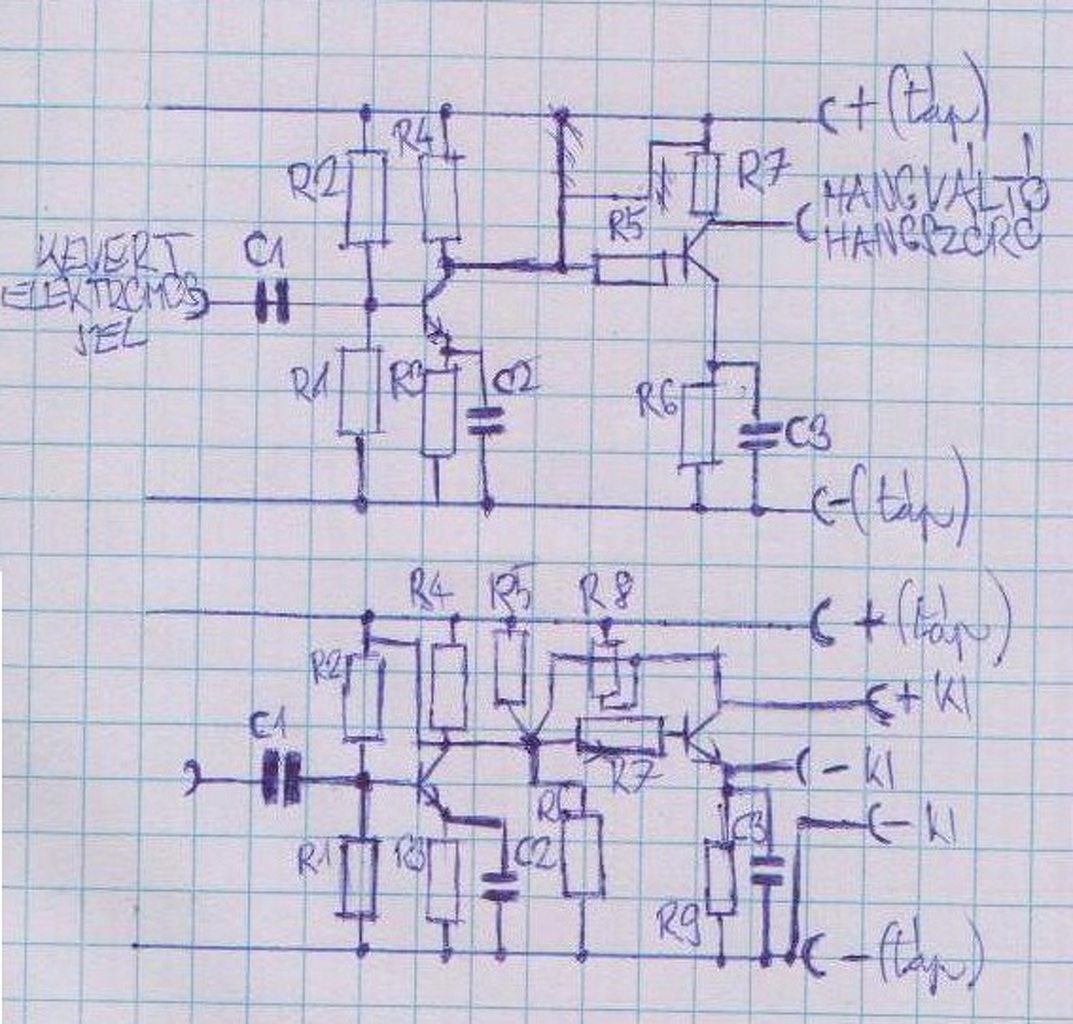 + (táp)
R4
R2
R7
HANGVÁLTÓ
R5
HANGSZÓRÓ
KEVERT
C1
ELEKTROMOS
JEL
R1
R3
C2
R6
C3
- (táp)
R4
R5
R8
+ (táp)
R2
+ KI
C1
R7
- KI
- KI
C3
R1
R3
C2
R9
- (táp)